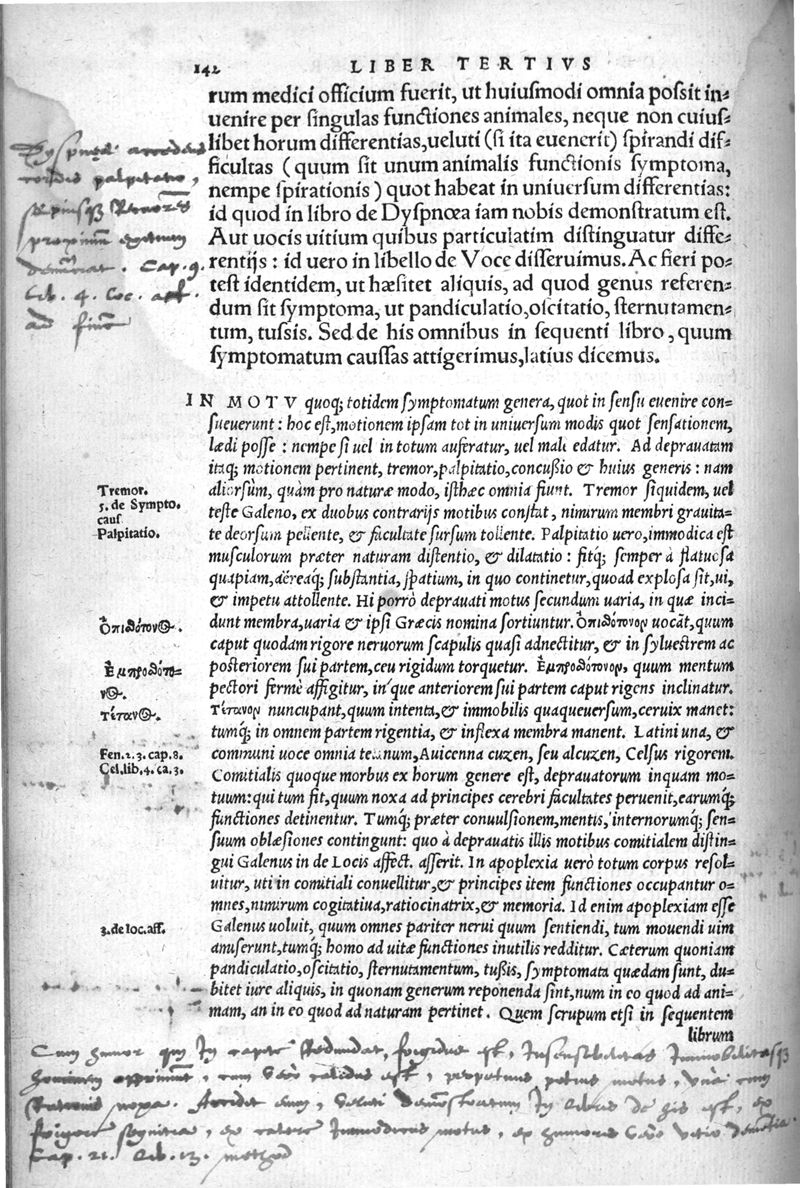 142
LIBER TERTIVS
rum medici officium fuerit, ut huiusmodi omnia possit in=
uenire per singulas functiones animales, neque non cuius=
libet horum differentias, ueluti (si ita euenerit) spirandi dif=
ficultas (quum sit unum animalis functionis symptoma,
nempe spirationis) quot habeat in uniuersum differentias:
id quod in libro de Dyspnœa iam nobis demonstratum est.
Aut uocis uitium quibus particulatim distinguatur diffe=
rentijs: id uero in libello de Voce disseruimus. Ac fieri po=
test identidem, ut hæsitet aliquis, ad quod genus referen=
dum sit symptoma, ut pandiculatio, oscitatio, sternutamen=
tum, tussis. Sed de his omnibus in sequenti libro, quum
symptomatum caussas attigerimus, latius dicemus.
accedens
cordis palpitatio,
Cap. 9.
Lib. 4. loc. aff.
ad finē
IN MOTV quoq; totidem symptomatum genera, quot in sensu euenire con=
sueuerunt: hoc est, motionem ipsam tot in uniuersum modis quot sensationem,
lædi posse: nempe si uel in totum auferatur, uel male edatur. Ad deprauatam
itaq; motionem pertinent, tremor, palpitatio, concußio & huius generis: nam
aliorsùm, quàm pro naturæ modo, isthæc omnia fiunt. Tremor siquidem, uel
teste Galeno, ex duobus contrarijs motibus constat, nimirum membri grauita=
te deorsum pellente, & facultate sursum tollente. Palpitatio uero, immodica est
musculorum præter naturam distentio, & dilatatio: fitq; semper à flatuosa
quapiam, aëreaq; substantia, spatium, in quo continetur, quoad explosa sit, ui,
& impetu attollente. Hi porrò deprauati motus secundum uaria, in quæ inci=
dunt membra, uaria & ipsi Græcis nomina sortiuntur. Ὀπιθότονον uocāt, quum
caput quodam rigore neruorum scapulis quasi adnectitur, & in syluestrem ac
posteriorem sui partem, ceu rigidum torquetur. Ἐμπροθότονον, quum mentum
pectori fermè affigitur, in que anteriorem sui partem caput rigens inclinatur.
Τέτανον nuncupant, quum intenta, & immobilis quaqueuersum, ceruix manet:
tumq; in omnem partem rigentia, & inflexa membra manent. Latini una, &
communi uoce omnia tetanum, Auicenna cuzen, seu alcuzen, Celsus rigorem.
Comitialis quoque morbus ex horum genere est, deprauatorum inquam mo=
tuum: qui tum fit, quum noxa ad principes cerebri facultates peruenit, earumq;
functiones detinentur. Tumq; præter conuulsionem, mentis, internorumq; sen=
suum oblæsiones contingunt: quo à deprauatis illis motibus comitialem distin=
gui Galenus in de Locis affect. asserit. In apoplexia uerò totum corpus resol=
uitur, uti in comitiali conuellitur, & principes item functiones occupantur o=
mnes, nimirum cogitatiua, ratiocinatrix, & memoria. Id enim apoplexiam esse
Galenus uoluit, quum omnes pariter nerui quum sentiendi, tum mouendi uim
amiserunt, tumq; homo ad uitæ functiones inutilis redditur. Cæterum quoniam
pandiculatio, oscitatio, sternutamentum, tußis, symptomata quædam sunt, du=
bitet iure aliquis, in quonam generum reponenda sint, num in eo quod ad ani=
mam, an in eo quod ad naturam pertinet. Quem scrupum etsi in sequentem
librum
Tremor.
5. de Sympto.
caus
Palpitatio.
Ὀπιθότονος.
Ἐμπροθότο=
νος.
τέτανος.
Fen. 2. 3. cap. 8.
Cel. lib. 4. ca. 3.
3. de loc. aff.
Cum humor qui in capite redundat, frigidus est, Insensibilitas Immobilitasq
hominem, cum vero calidus est, perpetuus motus, una cum
noxa. Accidit enim, veluti demōstratum in libris de his est, ex
frigore segnitia, ex calore Immodicus motus, ex humoris vero vitio dementia.
Cap. 21. Lib. 13. method